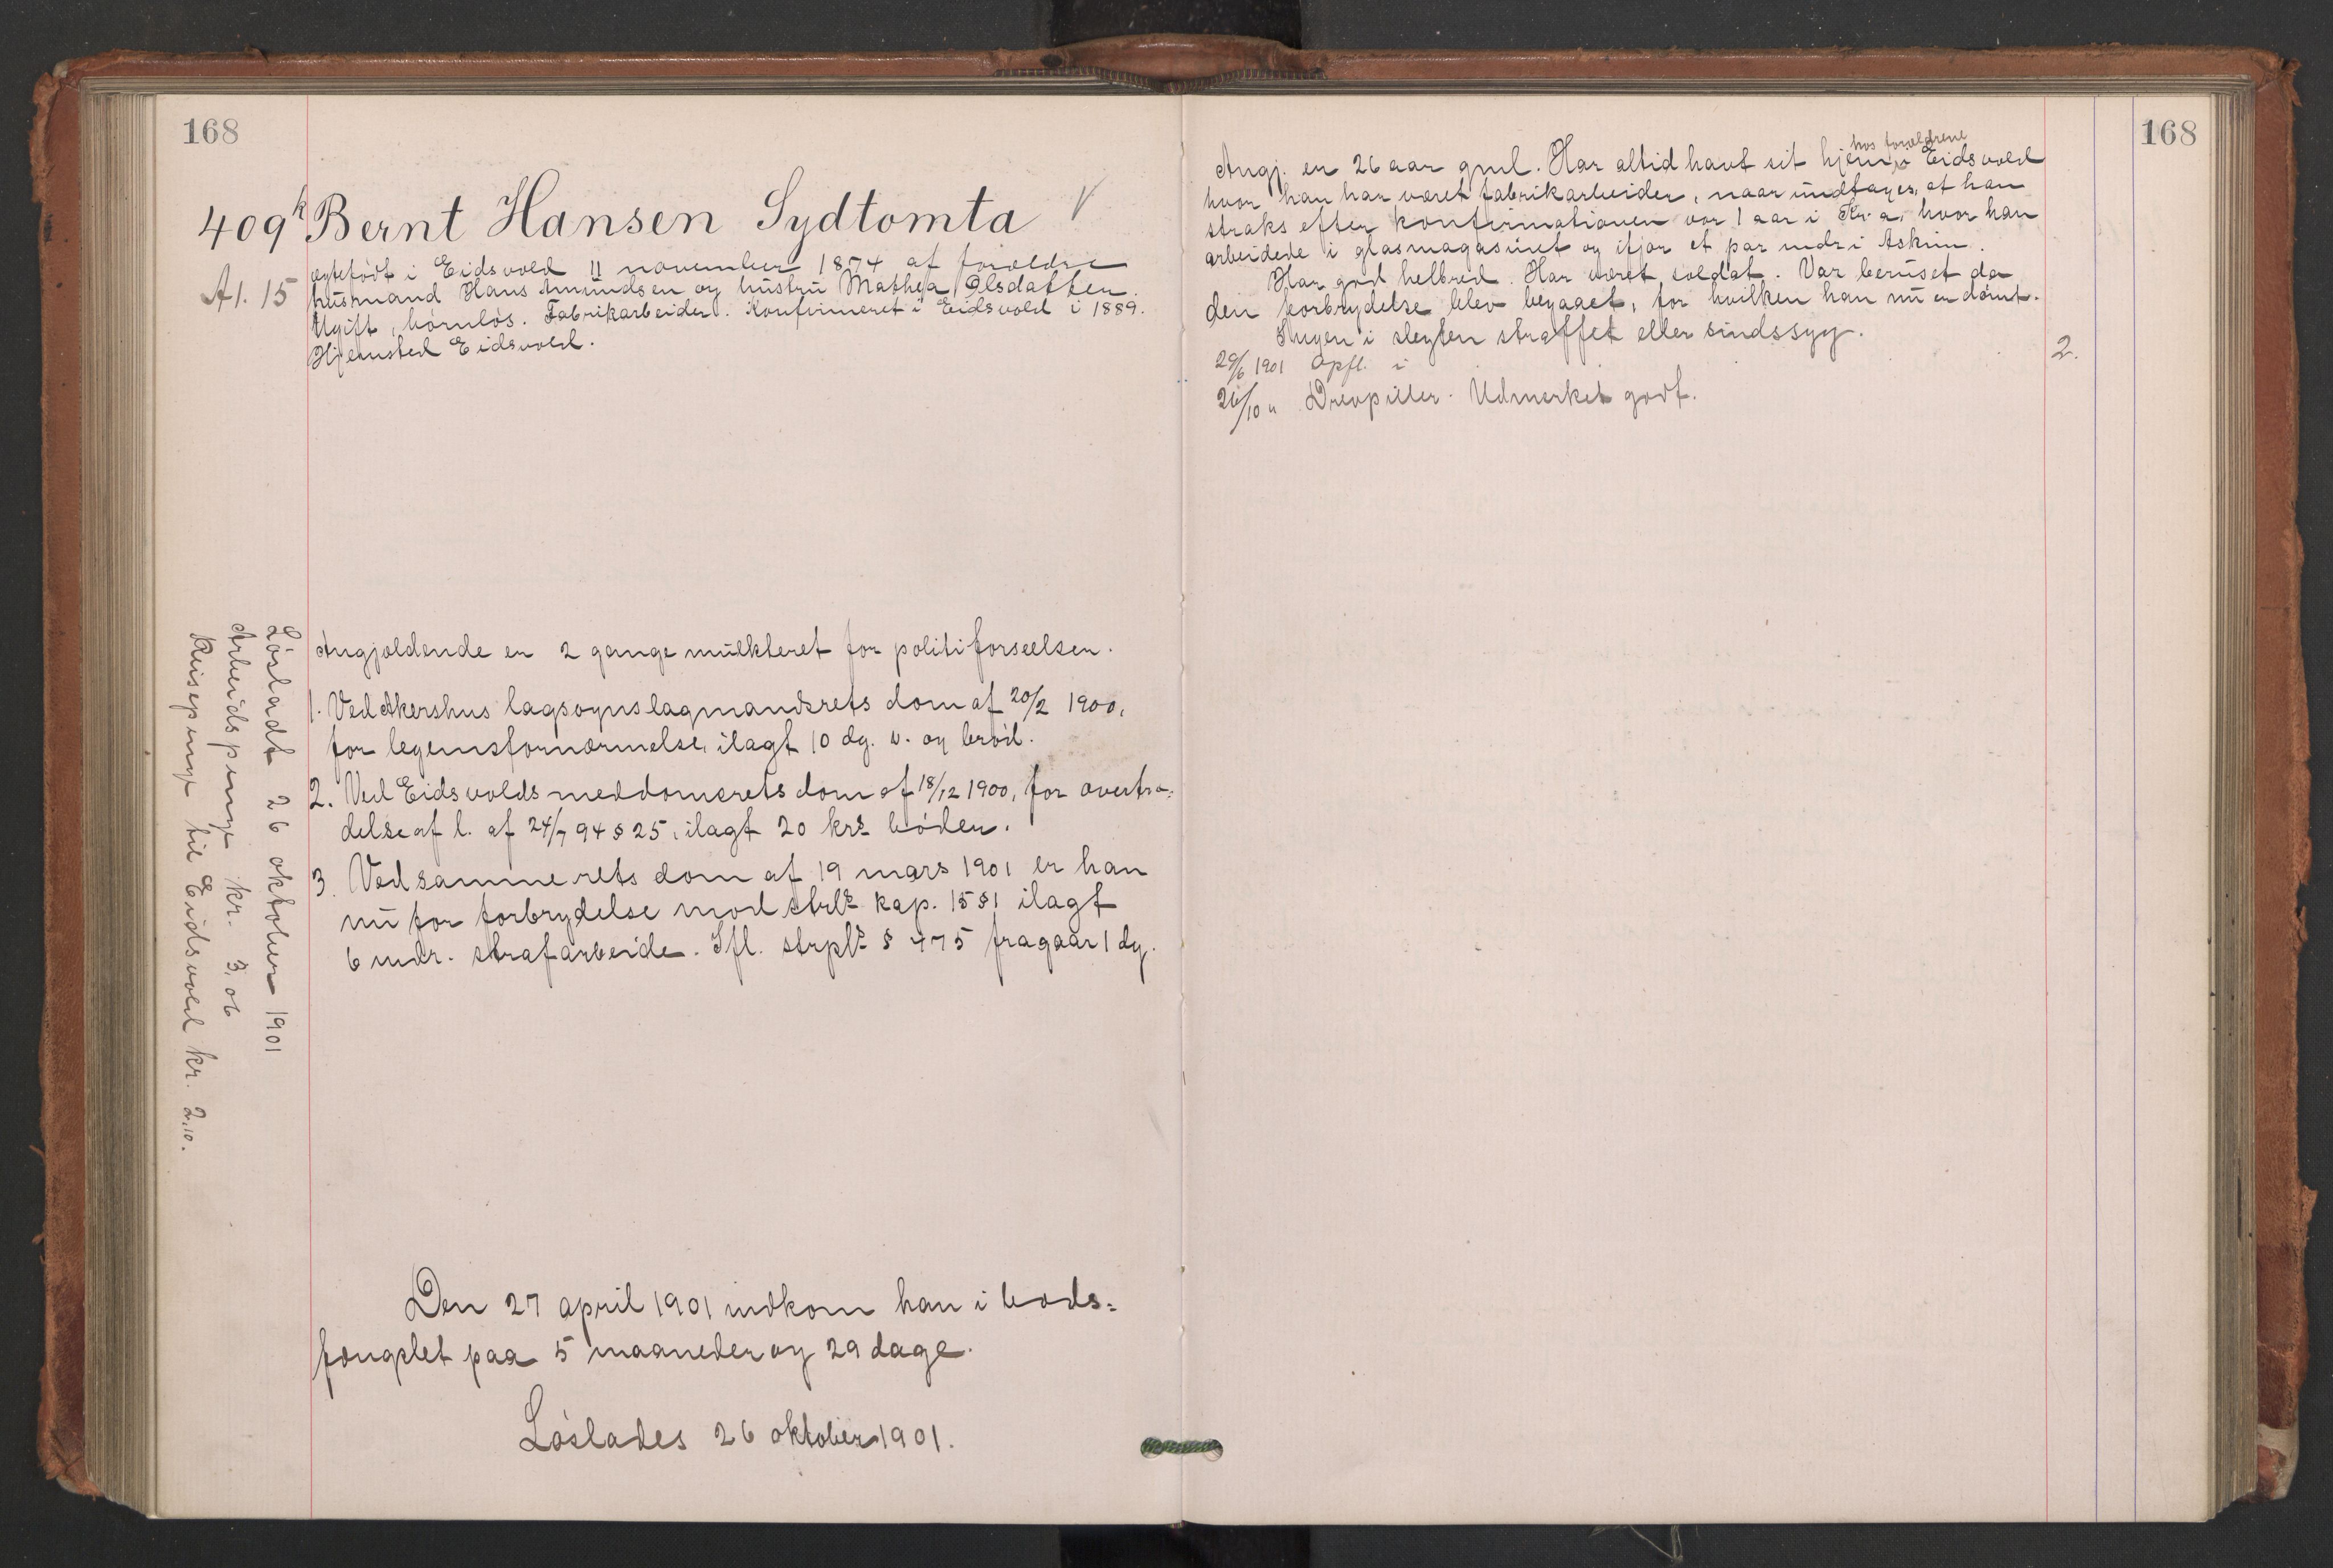 168
409k Bernt Hansen Sydtomta V
A1. 15
ægtefødt i Eidsvold 11 november 1874 af forældre
husmand Hans Amundsen og hustru Mathea Olsdatter.
Ugift, børnløs. Fabrikarbeider. Konfirmeret i Eidsvold i 1889.
Hjemsted Eidsvold.
Angjældende er 2 gange mulkteret for politiforseelser.
1. Ved Akershus lagsogns lagmandsrets dom af 20/2 1900,
for legemsfornærmelse, ilagt 10 dg. v. og brød.
2. Ved Eidsvolds meddomsrets dom af 18/12 1900, for overtræ=
delse af l. af 24/7 94 § 25, ilagt 20 krs bøder.
3. Ved samme rets dom af 19 mars 1901 er han
nu for forbrydelse mod strls kap. 15 § 1 ilagt
6 mdr. strafarbeide. Ifl. strpls § 475 fragaar 1 dg.
Den 27 april 1901 indkom han i bods=
fængslet paa 5 maaneder og 29 dage.
Løslades 26 oktober 1901.
Løsladt 26 oktober 1901
Arbeidspenge kr. 3,06
Reisepenge til Eidsvold kr. 2,10.
168
hos forældrene
Angj. er 26 aar gml. Har altid havt sit hjem i Eidsvold
hvor han har været fabrikarbeider, naar undtages, at han
straks efter konfirmationen var 1 aar i Kr.a, hvor han
arbeidede i glasmagasinet og ifjor et par mdr i Askim.
Har god helbred. Har været soldat. Var beruset da
den forbrydelse blev begaaet, for hvilken han nu er dømt.
Ingen i slegten straffet eller sindssyg.
29/6 1901 Opfl. i 2.
26/10 " Drevpiller. Udmerket godt.